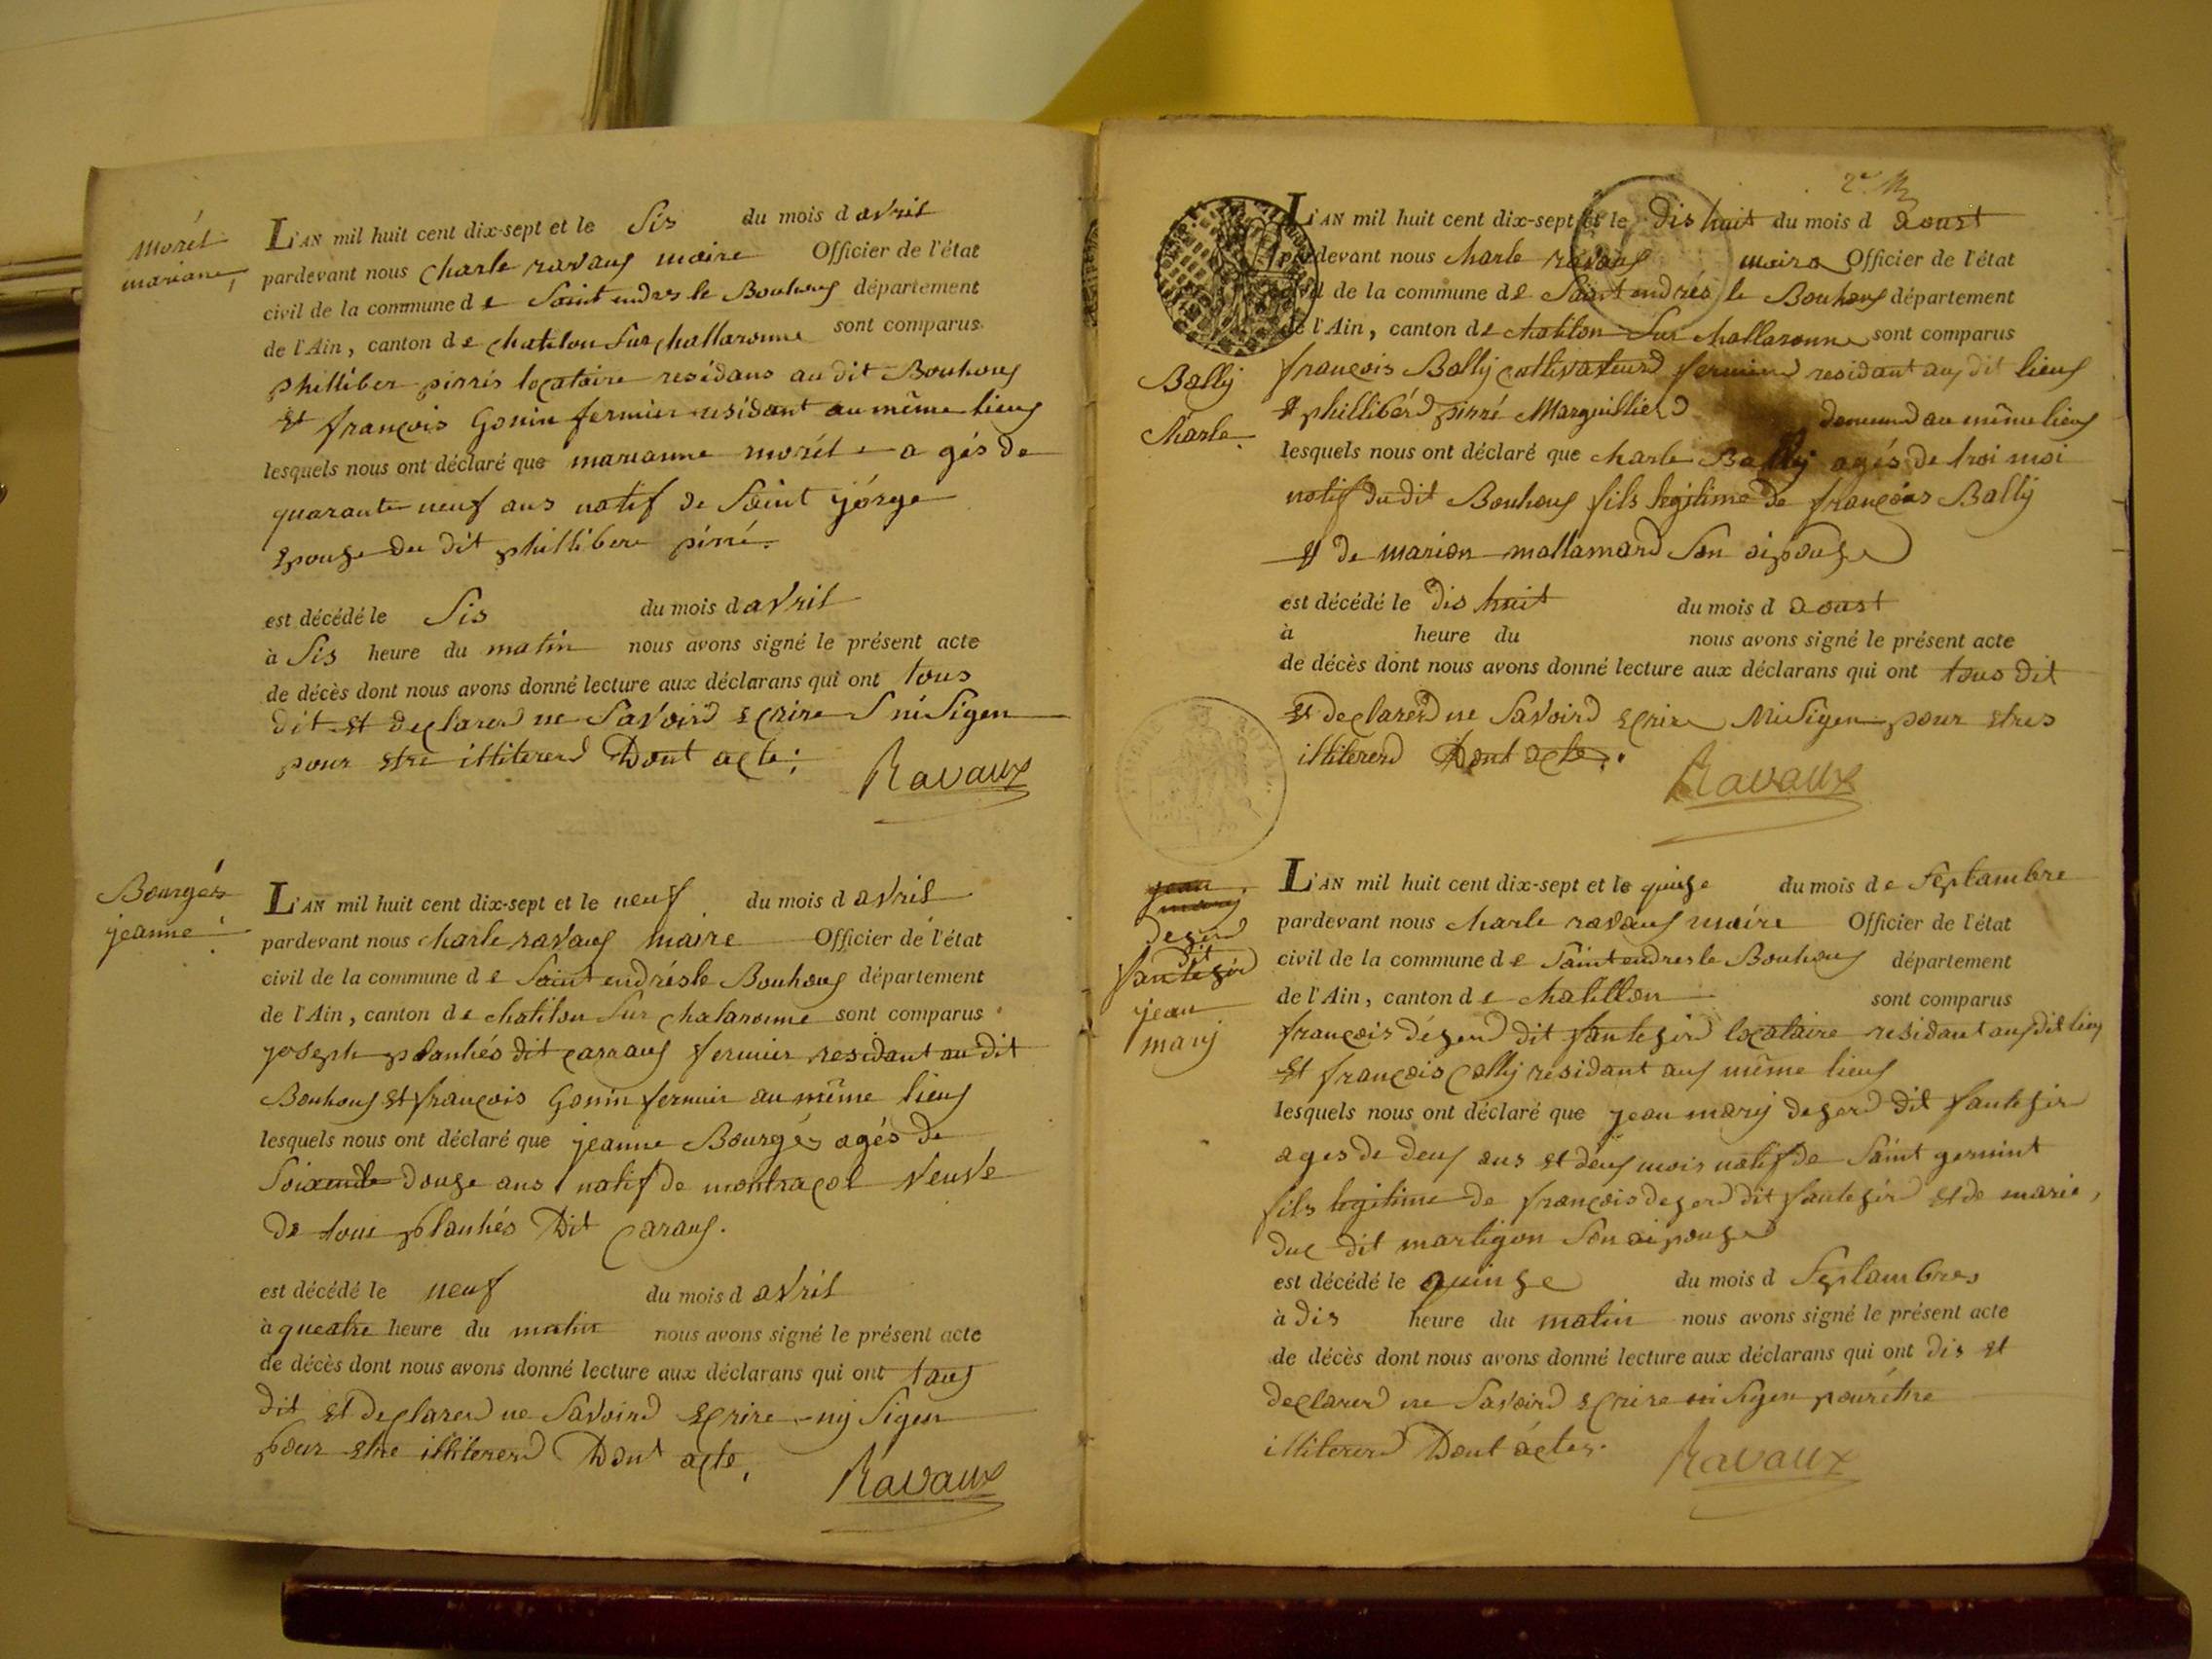 Morél
mariane,
L'AN mil huit cent dix-sept et le Sis du mois d avril
pardevant nous charle ravaux maire Officier de l'état
civil de la commune d e Saint endres le Bouhoux département
de l'Ain, canton de chatilon Sur challaronne sont comparus
philliber pirrés locataire residans au dit Bouhoux
et françois Gonin fermier residant au même lieux
lesquels nous ont déclaré que marianne morél e a gés de
quarante neuf ans natif de Saint jórge
epouse du dit phillibere pirré.
est décédé le Sis du mois d avril
à Sis heure du matin nous avons signé le présent acte
de décès dont nous avons donné lecture aux déclarans qui ont tous
dit et declarer ne Savoird ecrire ni Sigen
pour etre illiterer Dont acte;
Ravaux
Bourgés
jeanne
L'AN mil huit cent dix-sept et le neuf du mois d avril
pardevant nous charle ravaux maire Officier de l'état
civil de la commune d e Saint endrés le Bouhoux département
de l'Ain, canton de chatilon Sur chalaronne sont comparus
joseph planhés dit caraux fermier residant au dit
Bouhoux et françois Gonin fermier au même lieux
lesquels nous ont déclaré que jeanne Bourgés agés de
Soixante douze ans natif de montracol veuve
de planhés Dit caraux.
est décédé le neuf du mois d avril
à queatre heure du matin nous avons signé le présent acte
de décès dont nous avons donné lecture aux déclarans qui ont taus
dit et declarer ne Savoird ecrire ny Sigen
pour etre illiterer Dont acte,
Ravaux
L'AN mil huit cent dix-sept et le dis huit du mois d aoust
pardevant nous charle ravaux maire Officier de l'état
civil de la commune de Saint endrés le Bouhoux département
de l'Ain, canton de chatilon Sur challaronne sont comparus
Bally
charle
françois Bally cultivateurd fermierd residant aux dit lieux
et phillibérd pirré Marguillierd demeurd au même lieux
lesquels nous ont déclaré que charle Bally agés de troi moi
natif du dit Bouhoux fils legitime de françois Bally
et de marion mallamard Son aipouse
est décédé le dis huit du mois d aoust
à heure du nous avons signé le présent acte
de décès dont nous avons donné lecture aux déclarans qui ont tous dit
et declarerd ne Savoird ecrire Ni Sigen pour etres
illiterer Dont acte.
Ravaux
jean
mary
dit
jean
marij
L'AN mil huit cent dix-sept et le quinze du mois de Septambre
pardevant nous charle ravaux maire Officier de l'état
civil de la commune d e Saint endres le Bouhoux département
de l'Ain, canton d e chatillon sont comparus
françois dézerd dit fantezird locataire residant aux dit lieu
et françois Cally residant aux même lieux
lesquels nous ont déclaré que jean marij dezerd dit fantezird
ages de deux ans et deux mois natif de Saint germint
fils legitime de françois dezerd dit fantezird et de marie,
duc dit martigon Son aipouze
est décédé le quinze du mois d Septambres
à dis heure du matin nous avons signé le présent acte
de décès dont nous avons donné lecture aux déclarans qui ont dis et
declarer ne Savoird ecrire ni Sigen pour être
illiterer Dont actes.
Ravaux